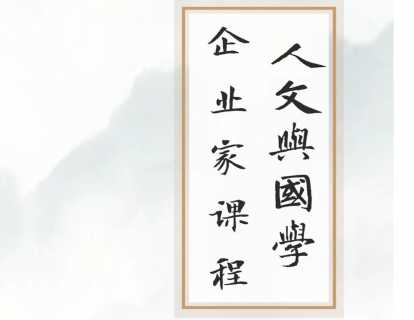 人文與國學
企业家课程